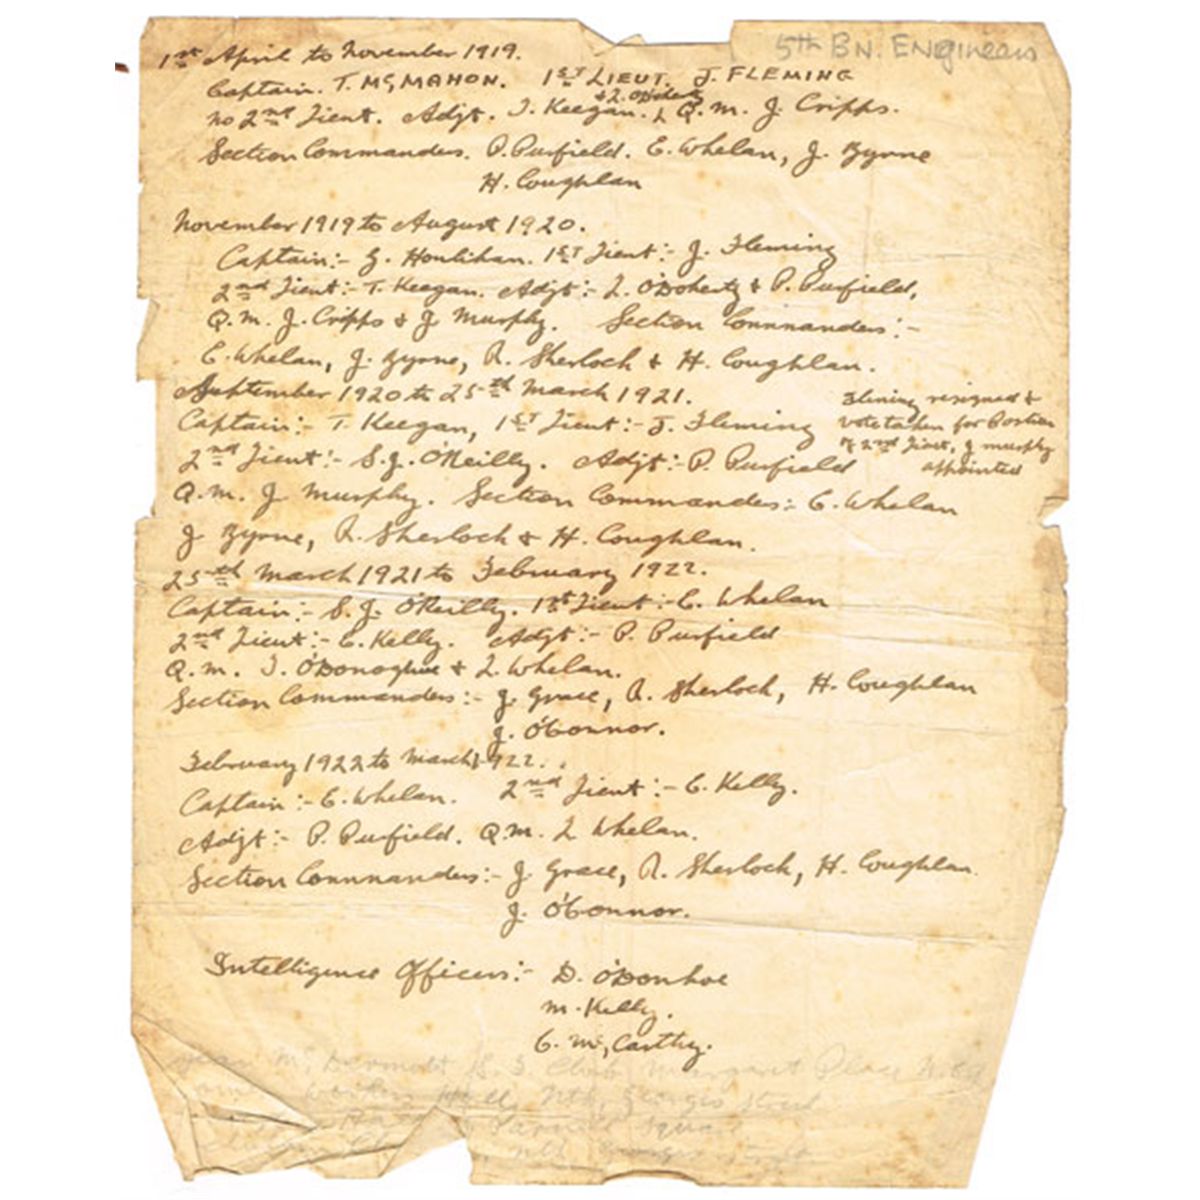 5th BN. ENgineers
1st April to November 1919.
Captain. T. McMAHON. 1ST LIEUT. J. FLEMING
& L. O'Doherty
no 2nd Lieut. Adjt. T. Keegan. Q. M. J. Cripps.
Section Commanders. P. Purfield. C. Whelan, J. Byrne
H. Coughlan
November 1919 to August 1920.
Captain:- G. Houlihan. 1ST Lieut:- J. Fleming
2nd Lieut:- T. Keegan. Adjt:- L. O'Doherty & P. Purfield,
Q.M. J. Cripps & J. Murphy. Section Commanders:-
C. Whelan, J. Byrne, R. Sherlock & H. Coughlan.
September 1920 to 25th March 1921.
Captain:- T. Keegan, 1ST Lieut:- J. Fleming
2nd Lieut:- S.J. O'Reilly. Adjt:- P. Purfield
Fleming resigned &
vote taken for Position
of 2nd Lieut, J. Murphy
appointed
Q.M. J. Murphy. Section Commanders:- C. Whelan
J. Byrne, R. Sherlock & H. Coughlan.
25th March 1921 to February 1922.
Captain:- S. J. O'Reilly. 1st Lieut:- C. Whelan
2nd Lieut:- C. Kelly. Adjt:- P. Purfield
Q.M. T. O'Donoghue & L. Whelan.
Section Commanders:- J. Grace, R. Sherlock, H. Coughlan
J. O'Connor.
February 1922 to March 1922.
Captain:- C. Whelan. 2nd Lieut:- C. Kelly.
Adjt:- P. Purfield. Q.M. L Whelan.
Section Commanders:- J. Grace, R. Sherlock, H. Coughlan.
J. O'Connor.
Intelligence Officers:- D. O'Donhoe
M. Kelly.
C. McCarthy.
McDermott Club Margaret Place
Workers Hall, Nth, Georges Street
Parnell Square
Nth Georges